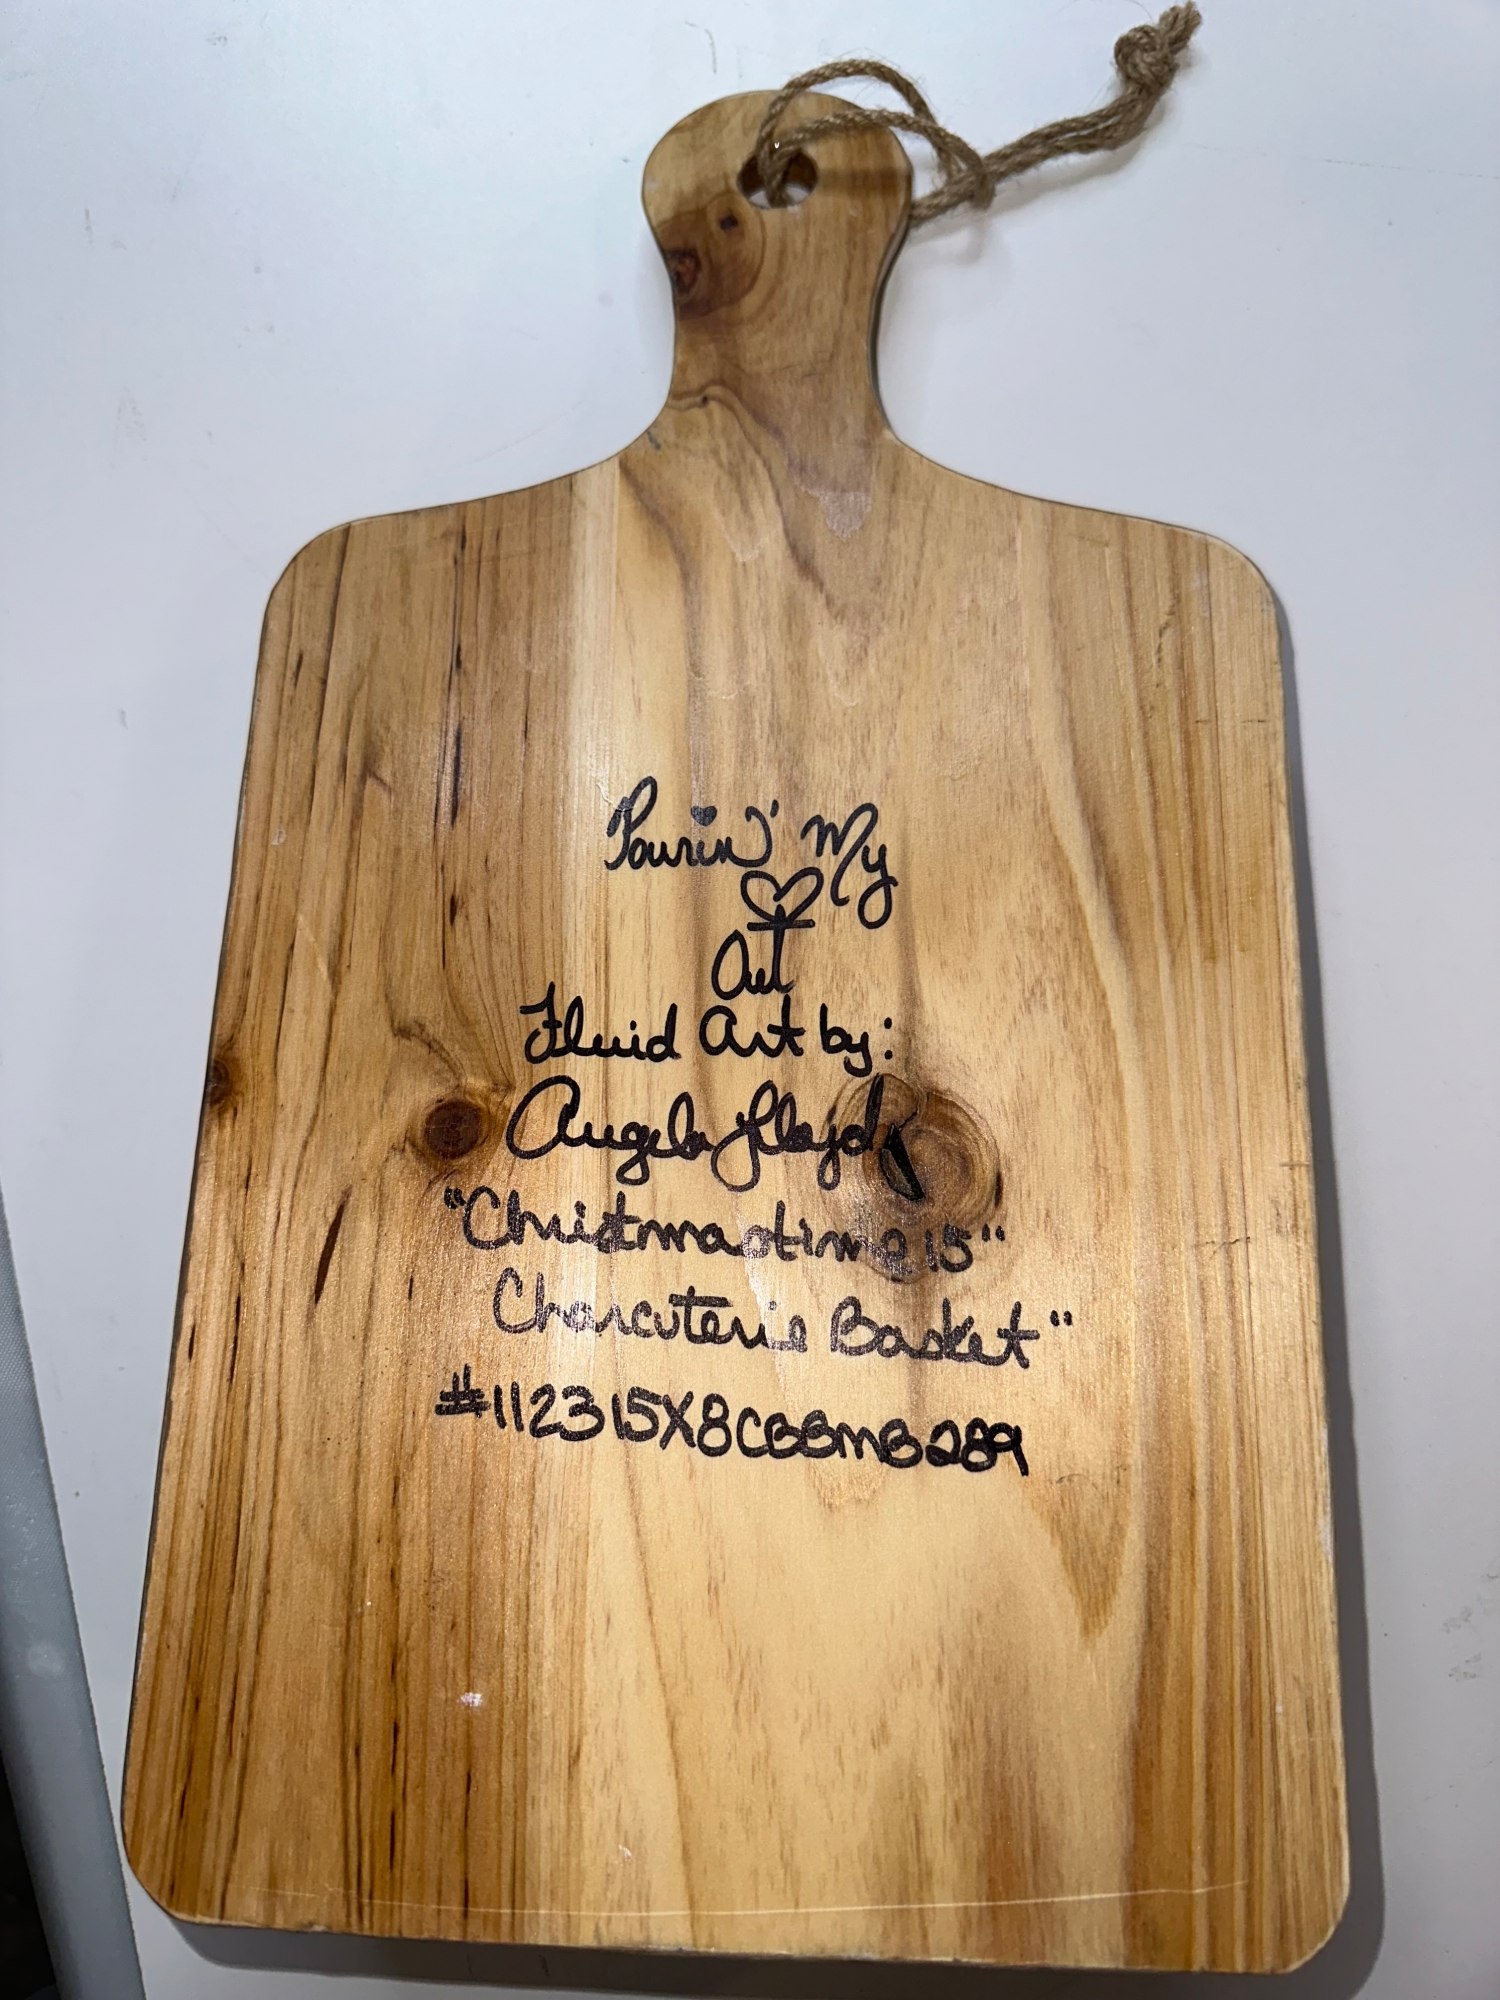 Pourin' My
Art
Fluid Art by:
Angela Lloyd
"Christmastime 15"
Charcuterie Basket"
#112315X8CBBMB289